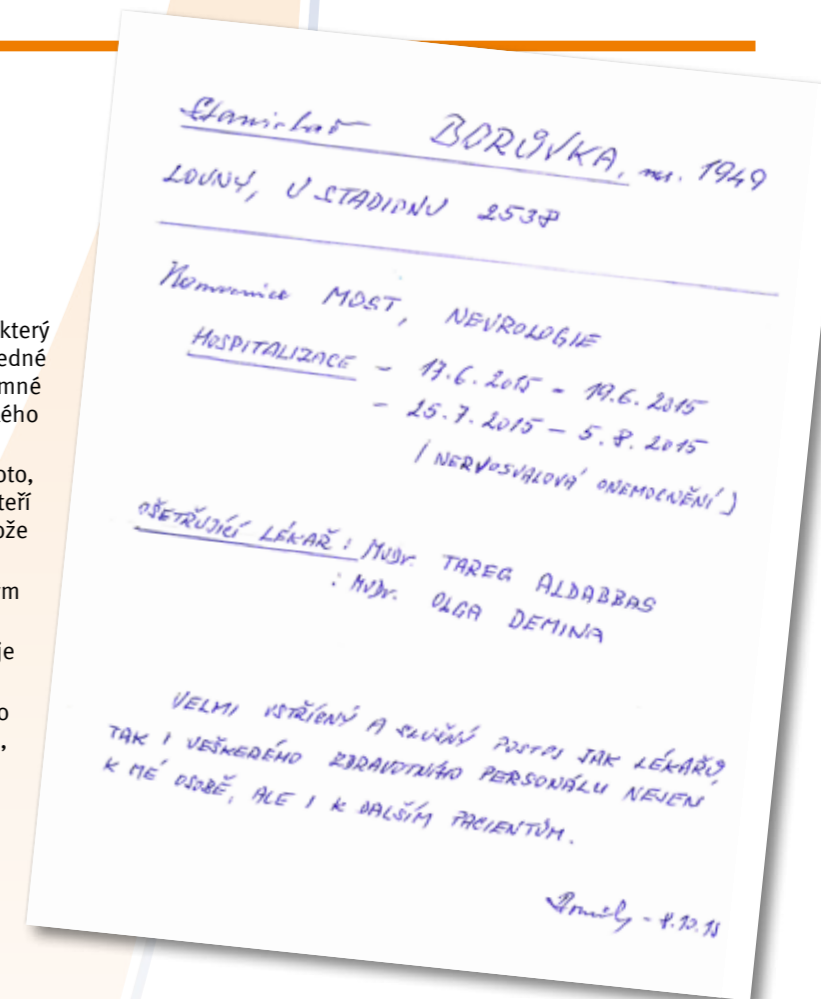 který
edné
mné
ého
oto,
teří
ože
m
je
o
,
Stanislav BORŮVKA, nar. 1949
LOUNY, U STADIONU 2538
Nemocnice MOST, NEUROLOGIE
HOSPITALIZACE - 17.6.2015 - 19.6.2015
- 25.7.2015 - 5.8.2015
(NERVOSVALOVÁ ONEMOCNĚNÍ)
OŠETŘUJÍCÍ LÉKAŘ: MUDr. TAREG ALDABBAS
: MUDr. OLGA DEMINA
VELMI VSTŘÍCNÝ A SLUŠNÝ POSTUP JAK LÉKAŘŮ,
TAK I VEŠKERÉHO ZDRAVOTNÍHO PERSONÁLU NEJEN
K MÉ OSOBĚ, ALE I K DALŠÍM PACIENTŮM.